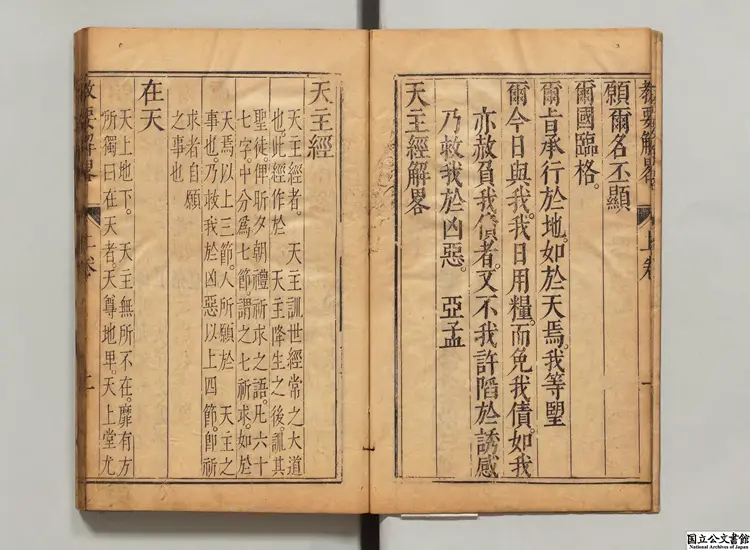 教要解畧 上卷 一
願爾名丕顯
爾國臨格。
爾旨承行於地。如於天焉。我等望
爾今日與我。我日用糧。而免我債。如我
亦赦負我債者。又不我許陷於誘感
乃救我於凶惡。 亞孟
天主經解畧
天主經
天主經者。 天主訓世經常之大道
也。此經作於 天主降生之後。訓其
聖徒。俾昕夕朝禮祈求之語。凡六十
七字。中分為七節。謂之七祈求。如於
天焉以上三節。人所願於 天主之
事也。乃救我於凶惡以上四節。即祈
求者自願
之事也
在天
天上地下。 天主無所不在。靡有方
所。獨曰在天者。天尊地卑。天上堂尤
教要解畧 上卷 二
国立公文書館
National Archives of Japan